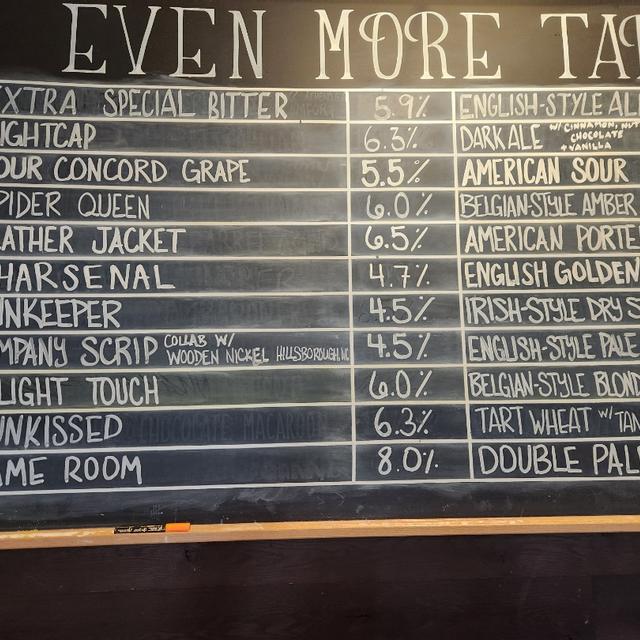 EVEN MORE TA
XTRA SPECIAL BITTER 5.9% ENGLISH-STYLE AL
IGHTCAP 6.3% DARK ALE W/ CINNAMON, NUT
CHOCOLATE
+ VANILLA
OUR CONCORD GRAPE 5.5% AMERICAN SOUR
PIDER QUEEN 6.0% BELGIAN-STYLE AMBER
ATHER JACKET 6.5% AMERICAN PORTE
HARSENAL 4.7% ENGLISH GOLDEN
NKEEPER 4.5% IRISH-STYLE DRY S
MPANY SCRIP COLLAB W/ WOODEN NICKEL HILLSBOROUGH, NC 4.5% ENGLISH-STYLE PALE
LIGHT TOUCH 6.0% BELGIAN-STYLE BLOND
UNKISSED 6.3% TART WHEAT W/ TAN
AME ROOM 8.0% DOUBLE PAL